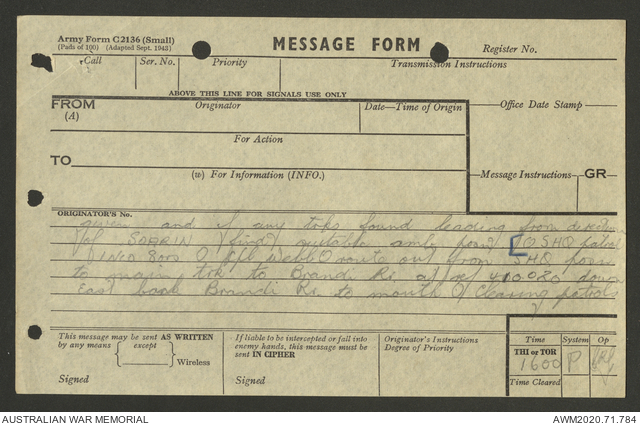 Army Form C2136 (Small)
(Pads of 100) (Adapted Sept. 1943)
MESSAGE FORM
Register No.
Call
Ser. No.
Priority
Transmission Instructions
ABOVE THIS LINE FOR SIGNALS USE ONLY
FROM
(A)
Originator
Date—Time of Origin
Office Date Stamp
For Action
TO
(w) For Information (INFO.)
Message Instructions
GR
ORIGINATOR'S No.
given and if any trks found leading from direction
of SORRIN find suitable amb posn 10 SHQ patrol
route out from SHQ posn
to main trk to Brandi R. at ref 410020 down
East bank Brandi R. to mouth Clearing patrols
This message may be sent AS WRITTEN
by any means
except
Wireless
Signed
If liable to be intercepted or fall into
enemy hands, this message must be
sent IN CIPHER
Signed
Originator's Instructions
Degree of Priority
Time
System
Op
THI or TOR
1600
P
Time Cleared
AUSTRALIAN WAR MEMORIAL
AWM2020.71.784